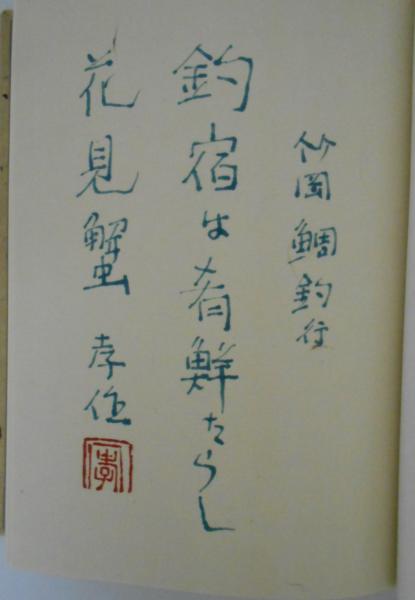 竹岡鯛釣行
釣宿は肴鮮たらし
花見蟹 孝作
孝